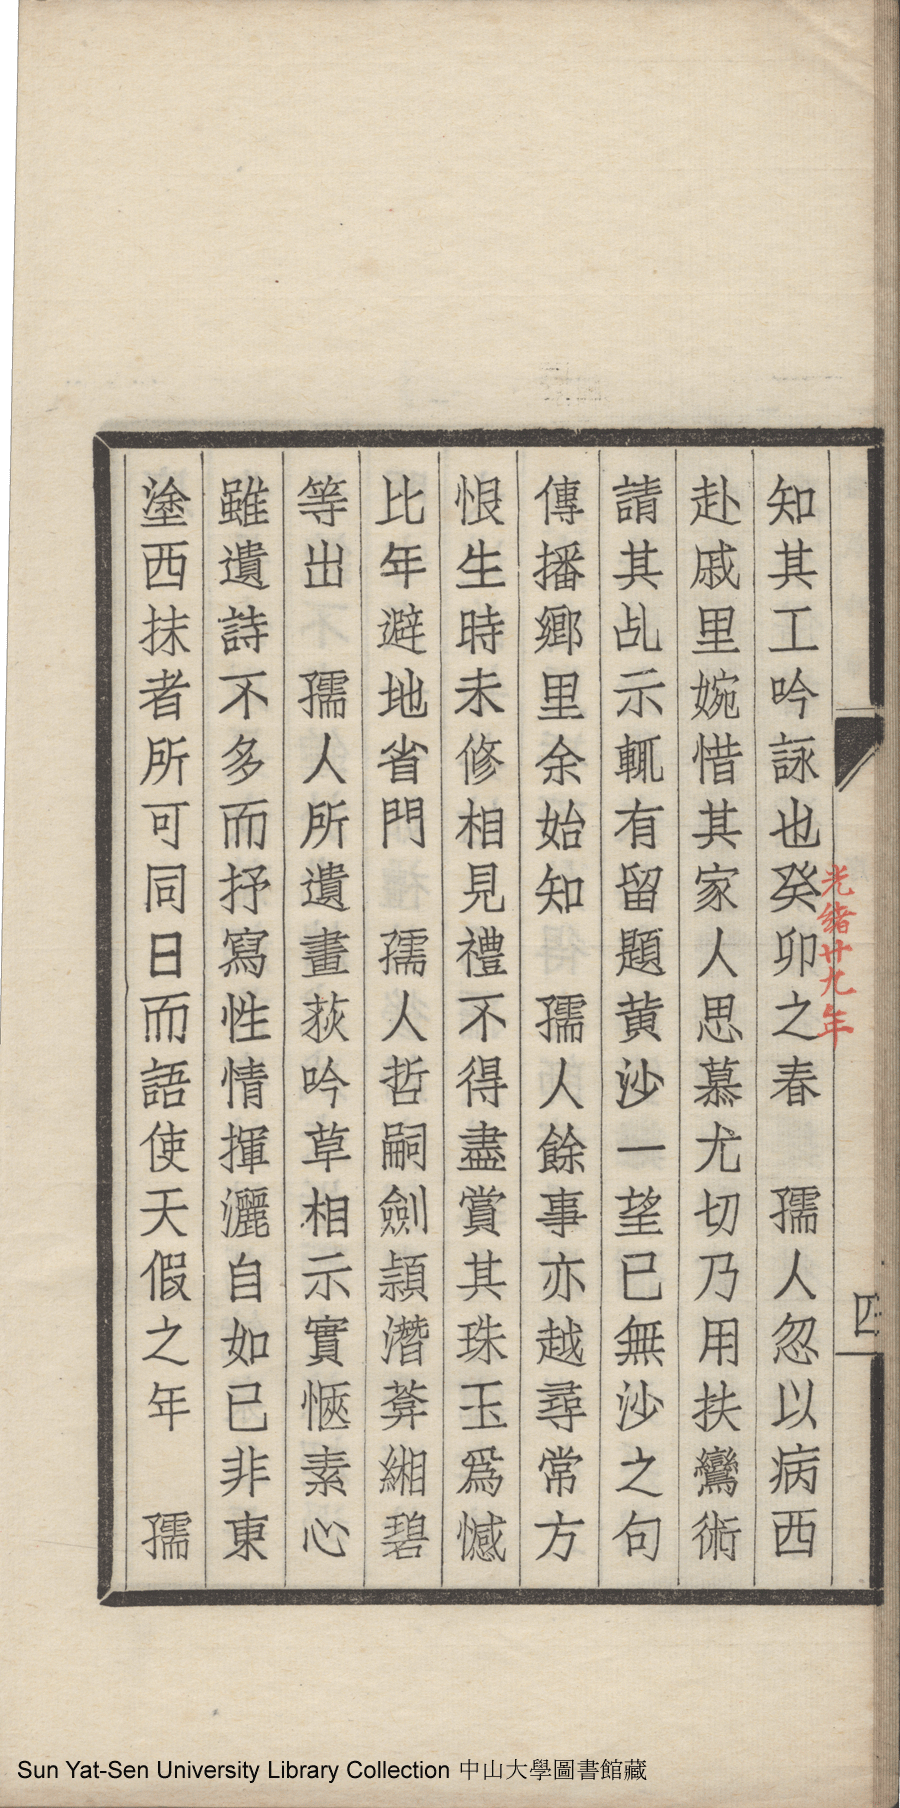 知其工吟詠也癸卯之春　孺人忽以病西
光緒廿九年
赴戚里婉惜其家人思慕尤切乃用扶鸞術
請其乩示輒有留題黃沙一望已無沙之句
傳播鄉里余始知　孺人餘事亦越尋常方
恨生時未修相見禮不得盡賞其珠玉爲憾
比年避地省門　孺人哲嗣劍頴潛葊緗碧
等出　孺人所遺畫荻吟草相示實愜素心
雖遺詩不多而抒寫性情揮灑自如已非東
塗西抹者所可同日而語使天假之年　孺
四
Sun Yat-Sen University Library Collection 中山大學圖書館藏